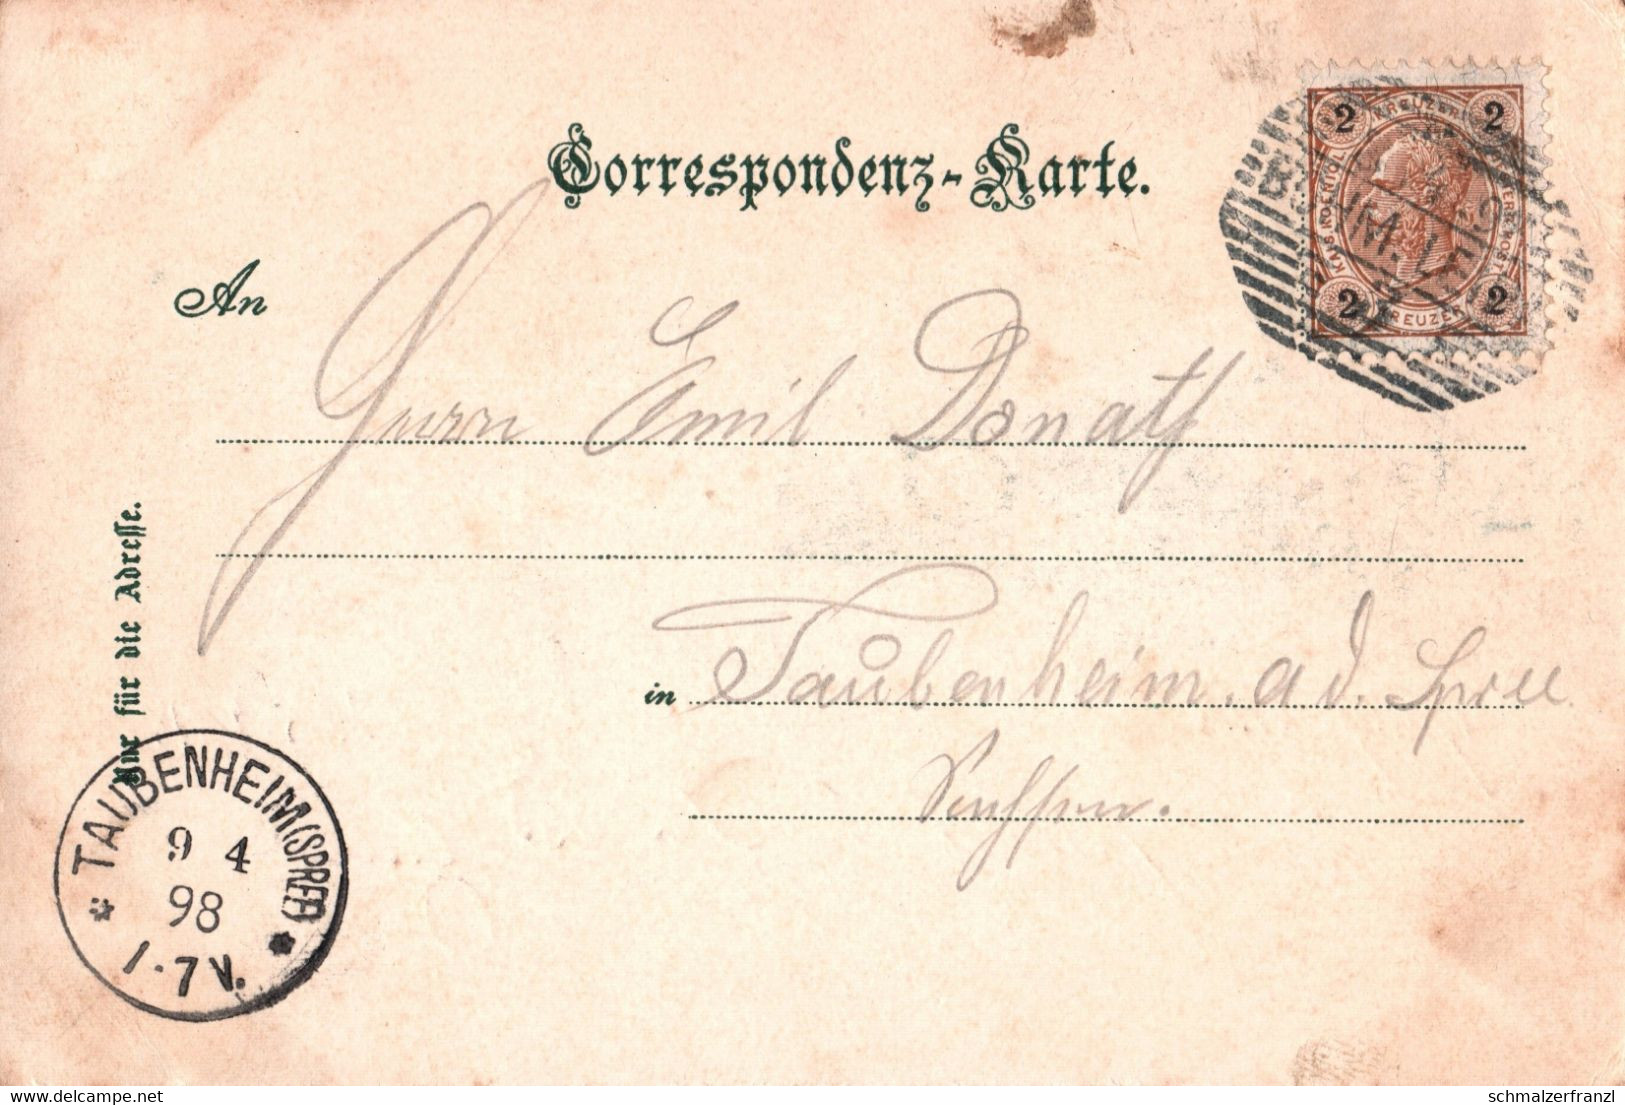 Correspondenz-Karte.
2 KREUZER 2
2 KREUZER 2
An Herrn Emil Donath
in Taubenheim a d. Spree
Sachsen.
Nur für die Adresse.
TAUBENHEIM (SPREE)
9 4
98
1-7V.
schmalzerfranzl